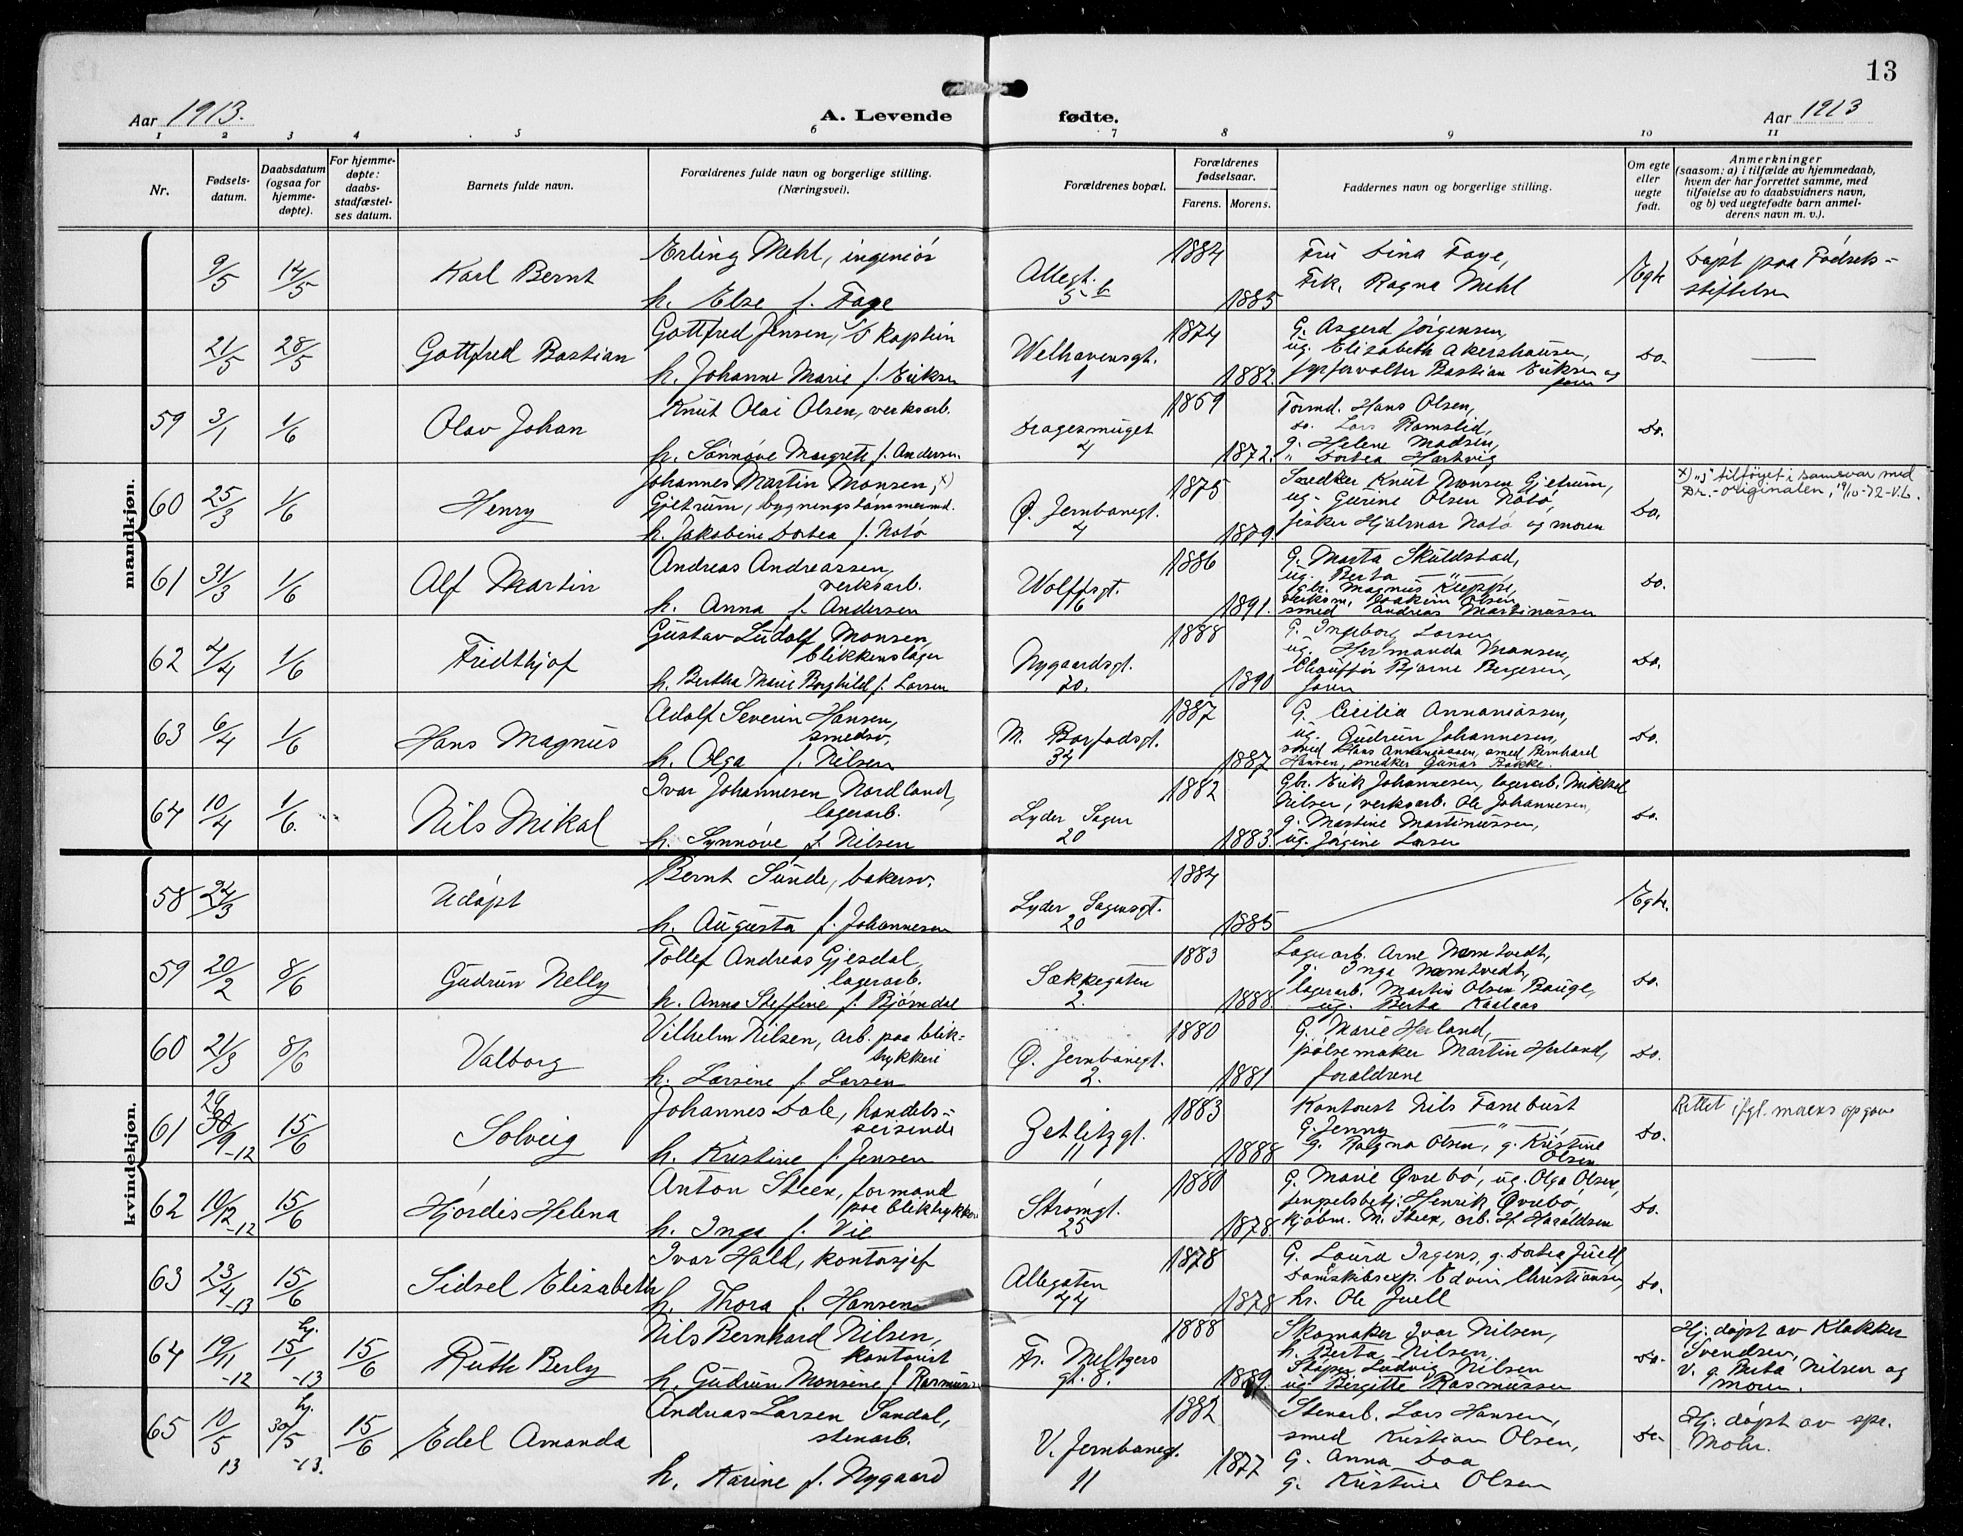 13
Aar 1913.
A. Levende fødte.
Aar 1913
1 2 3 4 5 6 7 8 9 10 11
Nr.
Fødsels-
datum.
Daabsdatum
(ogsaa for
hjemme-
døpte).
For hjemme-
døpte:
daabs-
stadfæstel-
ses datum.
Barnets fulde navn.
Forældrenes fulde navn og borgerlige stilling.
(Næringsvei).
Forældrenes bopæl.
Forældrenes
fødselsaar.
Farens. Morens.
Faddernes navn og borgerlige stilling.
Om egte
eller
uegte
født.
Anmerkninger
(saasom: a) i tilfælde av hjemmedaab,
hvem der har forrettet samme, med
tilføielse av to daabsvidners navn,
og b) ved uegtefødte barn anmel-
derens navn m. v.).
mandkjøn.
9/5 14/5 Karl Bernt
Erling Mehl, ingeniør
h. Else f. Faye
Allegt. 5 b
1884 1885
Fru Dina Faye,
Frk. Ragna Mehl
Egte
Døpt paa Fødsels-
stiftelsen
21/5 28/5 Gottfred Bastian
Gottfred Jensen, kaptein
h. Johanne Marie f. Eriksen
Welhavensgt. 1
1874 1882.
G. Asgerd Jørgensen,
ug. Elisabeth Akershausen,
Bastian Eriksen og
Do.
59 3/1 1/6 Olav Johan
Knut Olai Olsen, verksarb.
h. Sønnøve Margrete f. Andersen.
Dragesmuget 4
1869 1872.
Formd. Hans Olsen,
do. Lars Ramslid,
g. Helene Madsen,
" Dortea Hartvig
Do.
60 25/3 1/6 Henry
Johannes Martin Monsen, x)
Gjetrum, bygningstømmermd.
h. Jakobine Dortea f. Notø
Ø. Jernbanegt. 4
1875 1879.
Snedker Knut Monsen Gjetrum,
ug. Gurine Olsen Notø,
fisker Hjalmar Notø og moren
Do.
x) "j" tilføyet i samsvar med
Dr.-originalen, 19/10-72-
61 31/3 1/6 Alf Martin
Andreas Andreassen,
verksarb.
h. Anna f. Andersen
Wolffsgt. 6
1886 1891.
G. Marta Skuldstad,
ug. Berta — " —
gbr. Magnus Kleppe,
Joakim Olsen
smed Andreas Martinussen
Do.
62 4/4 1/6 Fridthjof
Gustav Ludolf Monsen,
blikkenslager
h. Bertha Marie Borghild f. Larsen
Nygaardsgt. 20.
1888 1890
G. Ingeborg Larsen,
ug. Hermanda Monsen,
Chauffør Bjarne Bergesen,
faren
Do.
63 6/4 1/6 Hans Magnus
Adolf Severin Hansen,
smedsv.
h. Olga f. Nilsen
M. 34
1887 1887
G. Cicilia Annaniassen,
ug. Gudrun Johannesen,
smed Hans Annaniassen, smed Bernhard
Hansen, snedker Gunas Bakke.
Do.
64 10/4 1/6. Nils Mikal
Ivar Johannesen Nordland,
lagerarb.
h. Synnøve f. Nilsen
Lyder Sagen 20
1882 1883.
Gbr. Erik Johannesen, lagerarb. Mikkel
Nilsen, verksarb. Ole Johannesen,
g. Martine Martinussen,
ug. Jørgine Larsen
Do.
kvindekjøn.
58 24/3 Udøpt
Bernt Sunde, bakersv.
h. Augusta f. Johannesen
Lyder Sagensgt. 20
1884 1885
Egte.
59 20/2 8/6 Gudrun Nelly
Tollef Andreas Gjesdal,
lagerarb.
h. Anna Steffine f. Bjørndal
Sækkegaten 2.
1883 1888
Lagerarb. Arne Nemtvedt,
g. Inga Nemtvedt,
lagerarb. Martin Olsen Bauge,
ug. Berta Kaalaas
Do.
60 21/3 8/6 Valborg
Vilhelm Nilsen, arb. paa blik-
trykkeri
h. Larsine f. Larsen
Ø. Jernbanegt. 2.
1880 1881
G. Marie Herland,
pølsemaker Martin Herland,
forældrene
Do.
61 29 30/9-12 15/6 Solveig
Johannes Dale, handels-
reisende
h. Kristine f. Jensen
Zetlitzgt. 11
1883 1888
Kontorist Nils Fanebust
G. Jenny — " —,
g. Ragna Olsen, g. Kristine
Olsen
Do.
Rettet ifgl. morens opgave
62 10/12-12 15/6 Hjørdis Helena
Anton Steen, formand
paa bliktrykkeri
h. Inga f. Vie
Strømgt. 25
1880 1878.
G. Marie Øvrebø, ug. Olga Olsen,
fengselsbetj. Henrik Øvrebø,
kjøbm. M. Steen, arb. H. Haraldsen
Do.
63 23/4-13 15/6 Sidsel Elisabeth
Ivar Hald, kontorsjef
h. Thora f. Hansen
Allegaten 44
1878 1878
G. Laura Irgens, g. Dortea Juell
Damskibsexp. Edvin Christiansen,
hr. Ole Juell
Do.
64 19/11-12 hj. 15/1-13 15/6 Ruth Berly
Nils Bernhard Nilsen,
kontorist
h. Gudrun Monsine f. Rasmussen
Fr. Meltzers gt. 8.
1888 1889.
Skomaker Ivar Nilsen,
h. Berta Nilsen,
Støper Ludvig Nilsen
ug. Birgitte Rasmussen
Do.
Hj. døpt av Klokker
Svendsen,
V. g. Berta Nilsen og
moren.
65 10/5 13 hj. 30/5-13. 15/6 Edel Amanda
Andreas Larsen Sandal,
stenarb.
h. Karine f. Nygaard
V. Jernbanegt. 11
1882 1877
Stenarb. Lars Hansen,
smed Kristian Olsen,
G. Anna Daa
g. Kristine Olsen
Do.
Hj. døpt av spr.
Mohr.